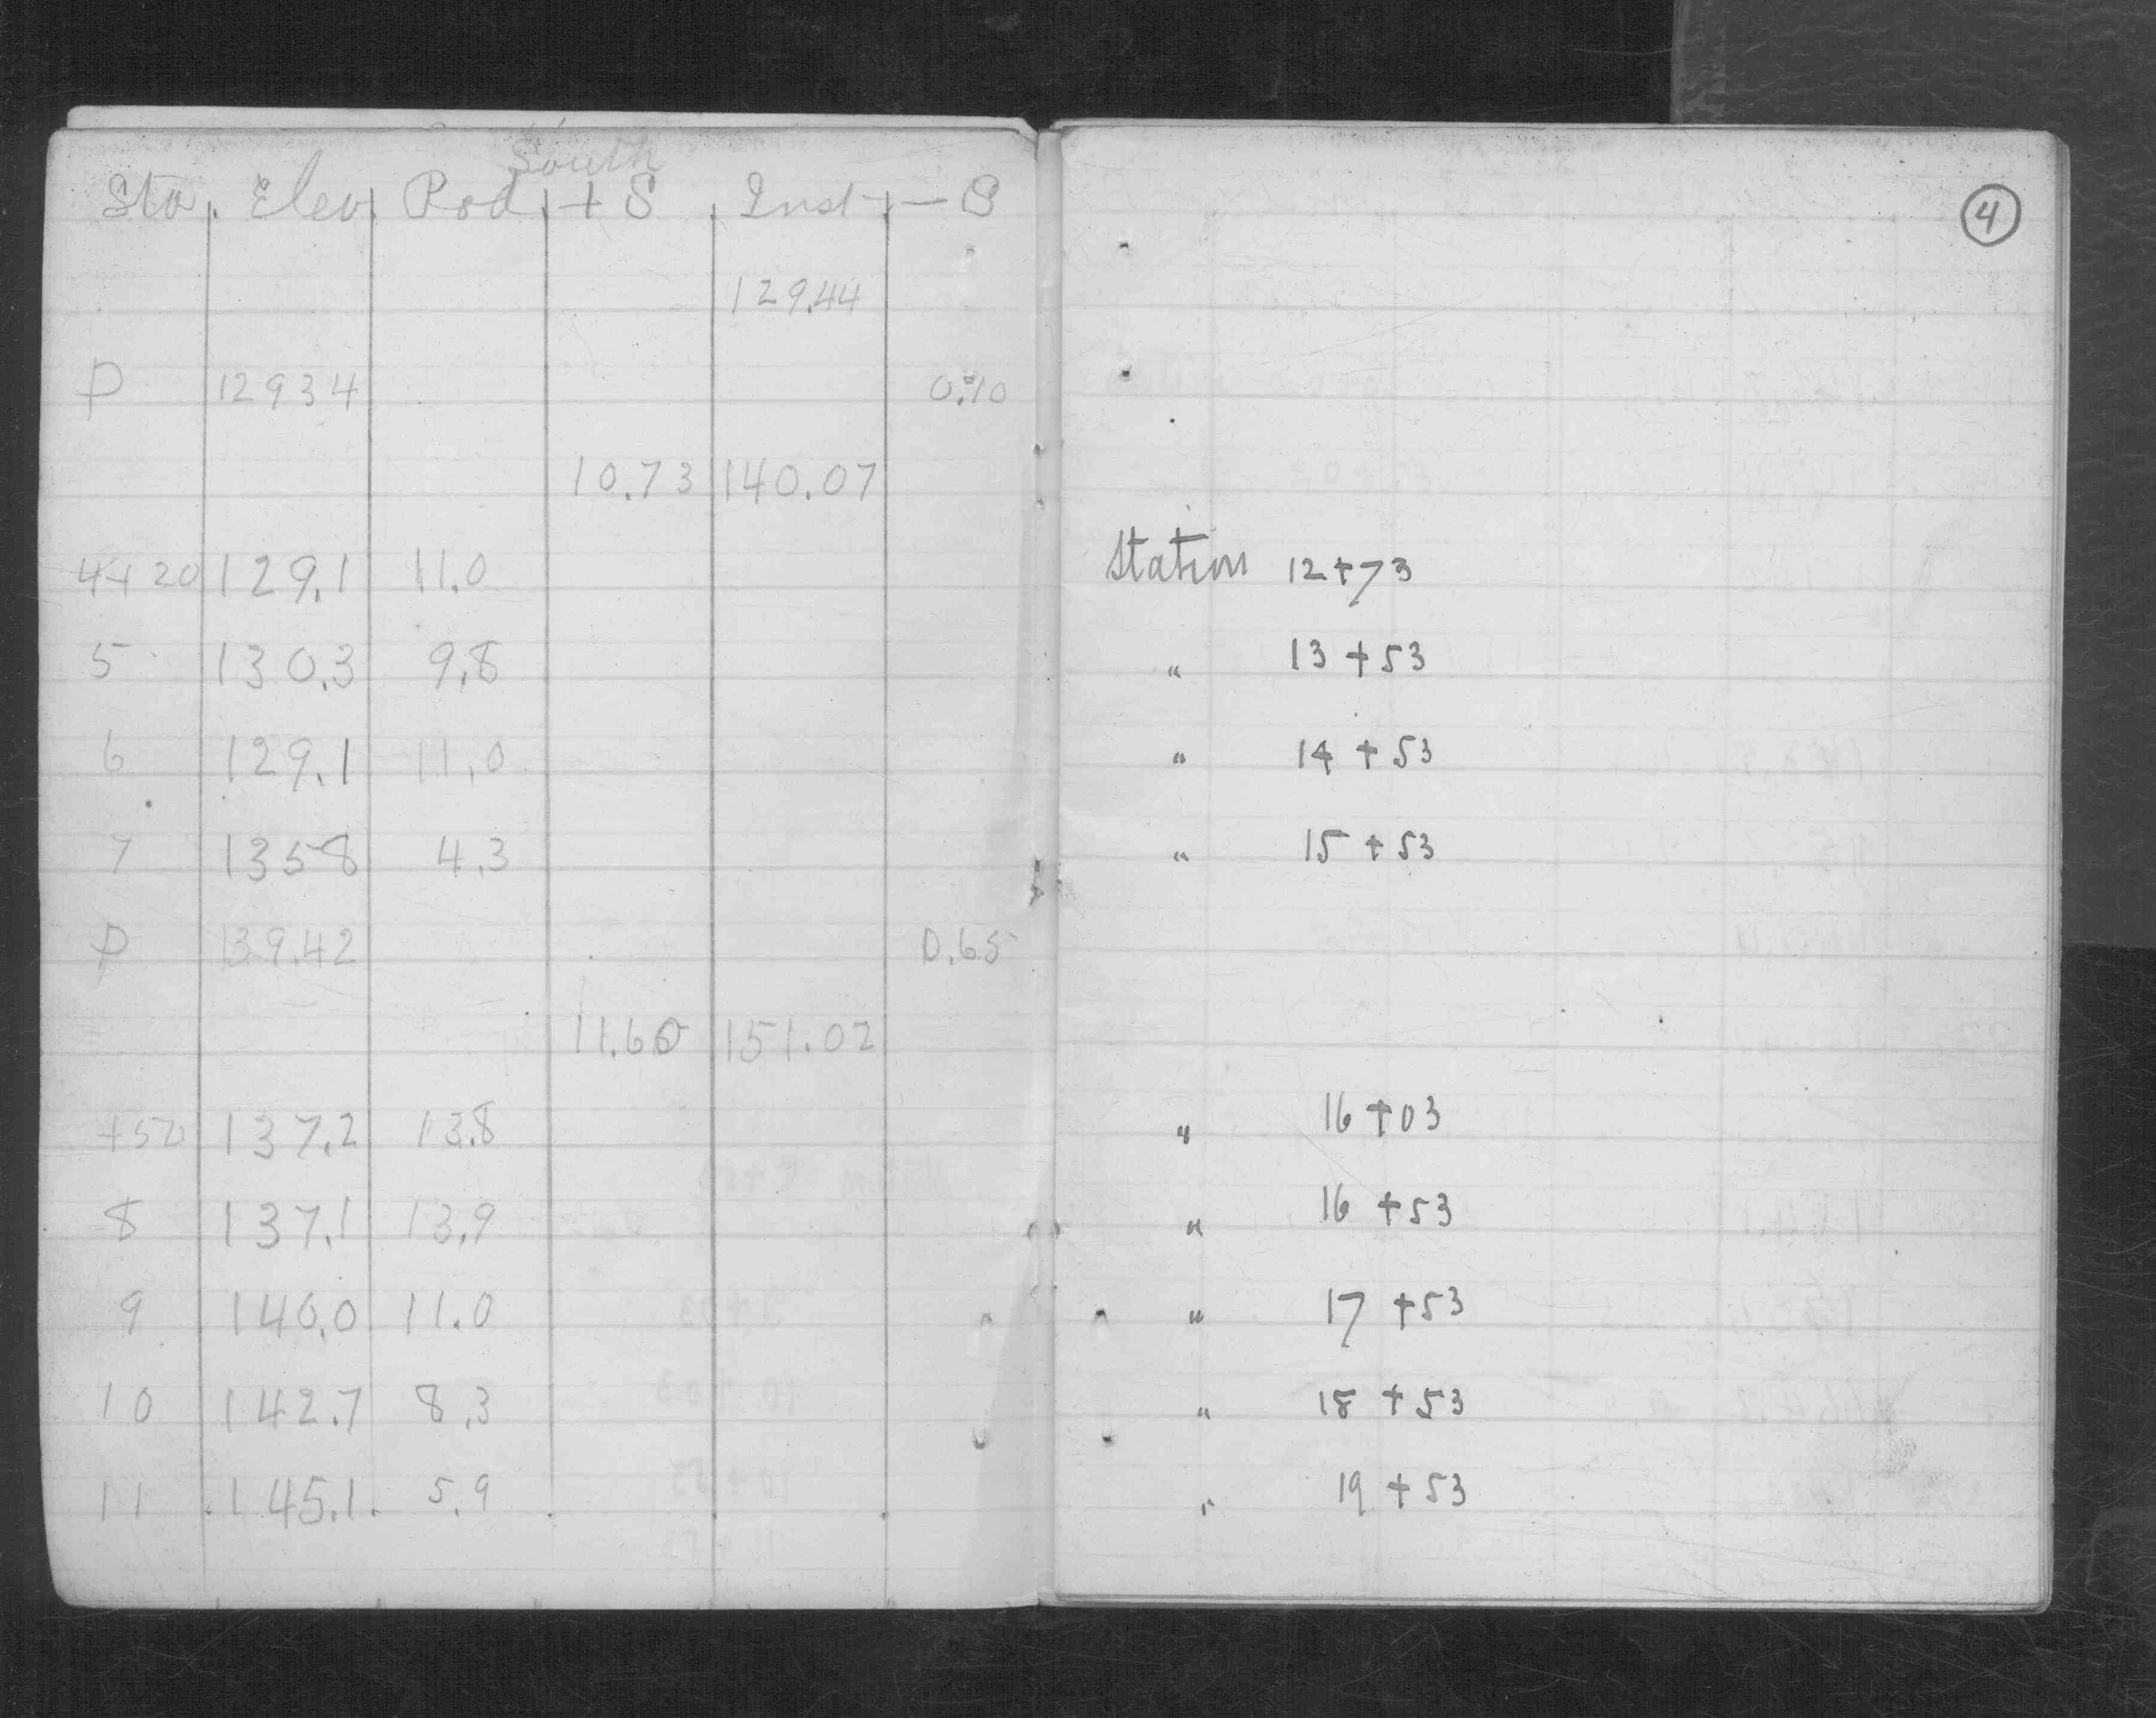 South
Sta. Elev. Rod. + S . Inst. - S
4
129.44
P 129 34 0.10
10.73 140.07
4+20 129.1 11.0 Station 12+73
5 130.3 9.8 " 13+53
6 129.1 11.0 " 14+53
7 135 8 4.3 " 15+53
P 139.42 0.65
11.60 151.02
+50 137.2 13.8 " 16+03
8 137.1 13.9 " 16+53
9 140.0 11.0 " 17+53
10 142.7 8.3 " 18+53
11 145.1 5.9 " 19+53